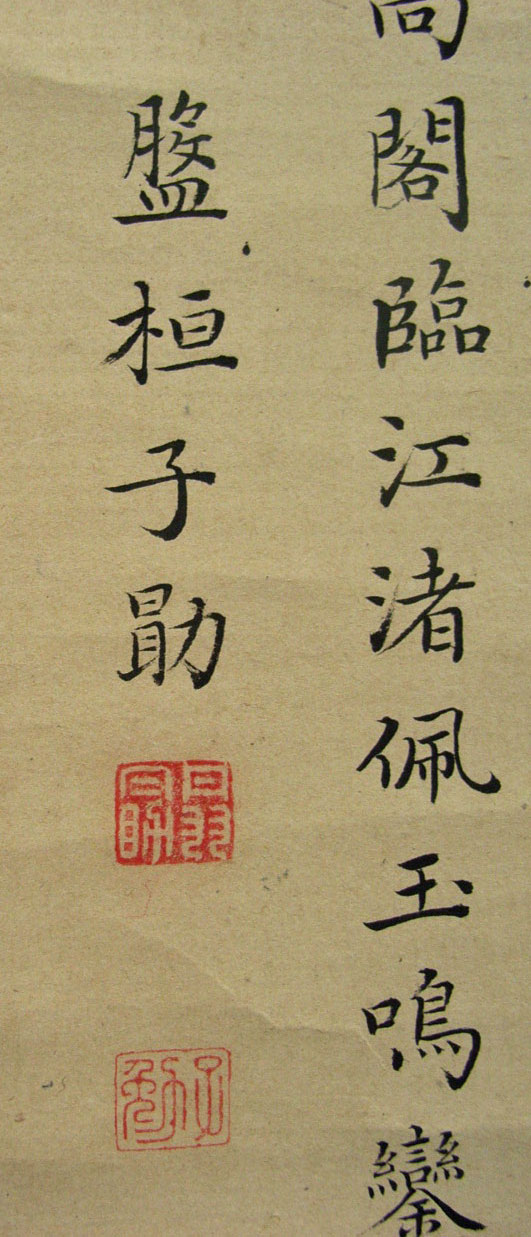 高閣臨江渚佩玉鳴鑾
盤桓子勖